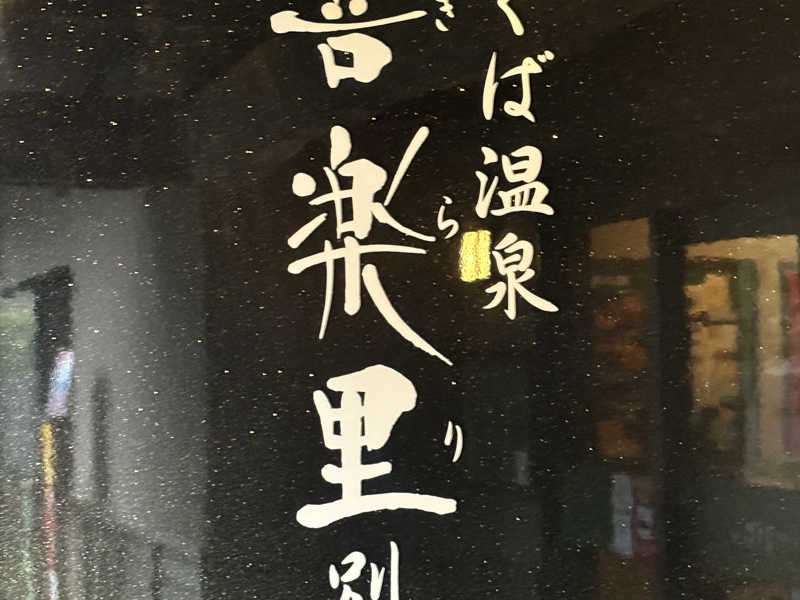 くば温泉
喜楽里別
きらり